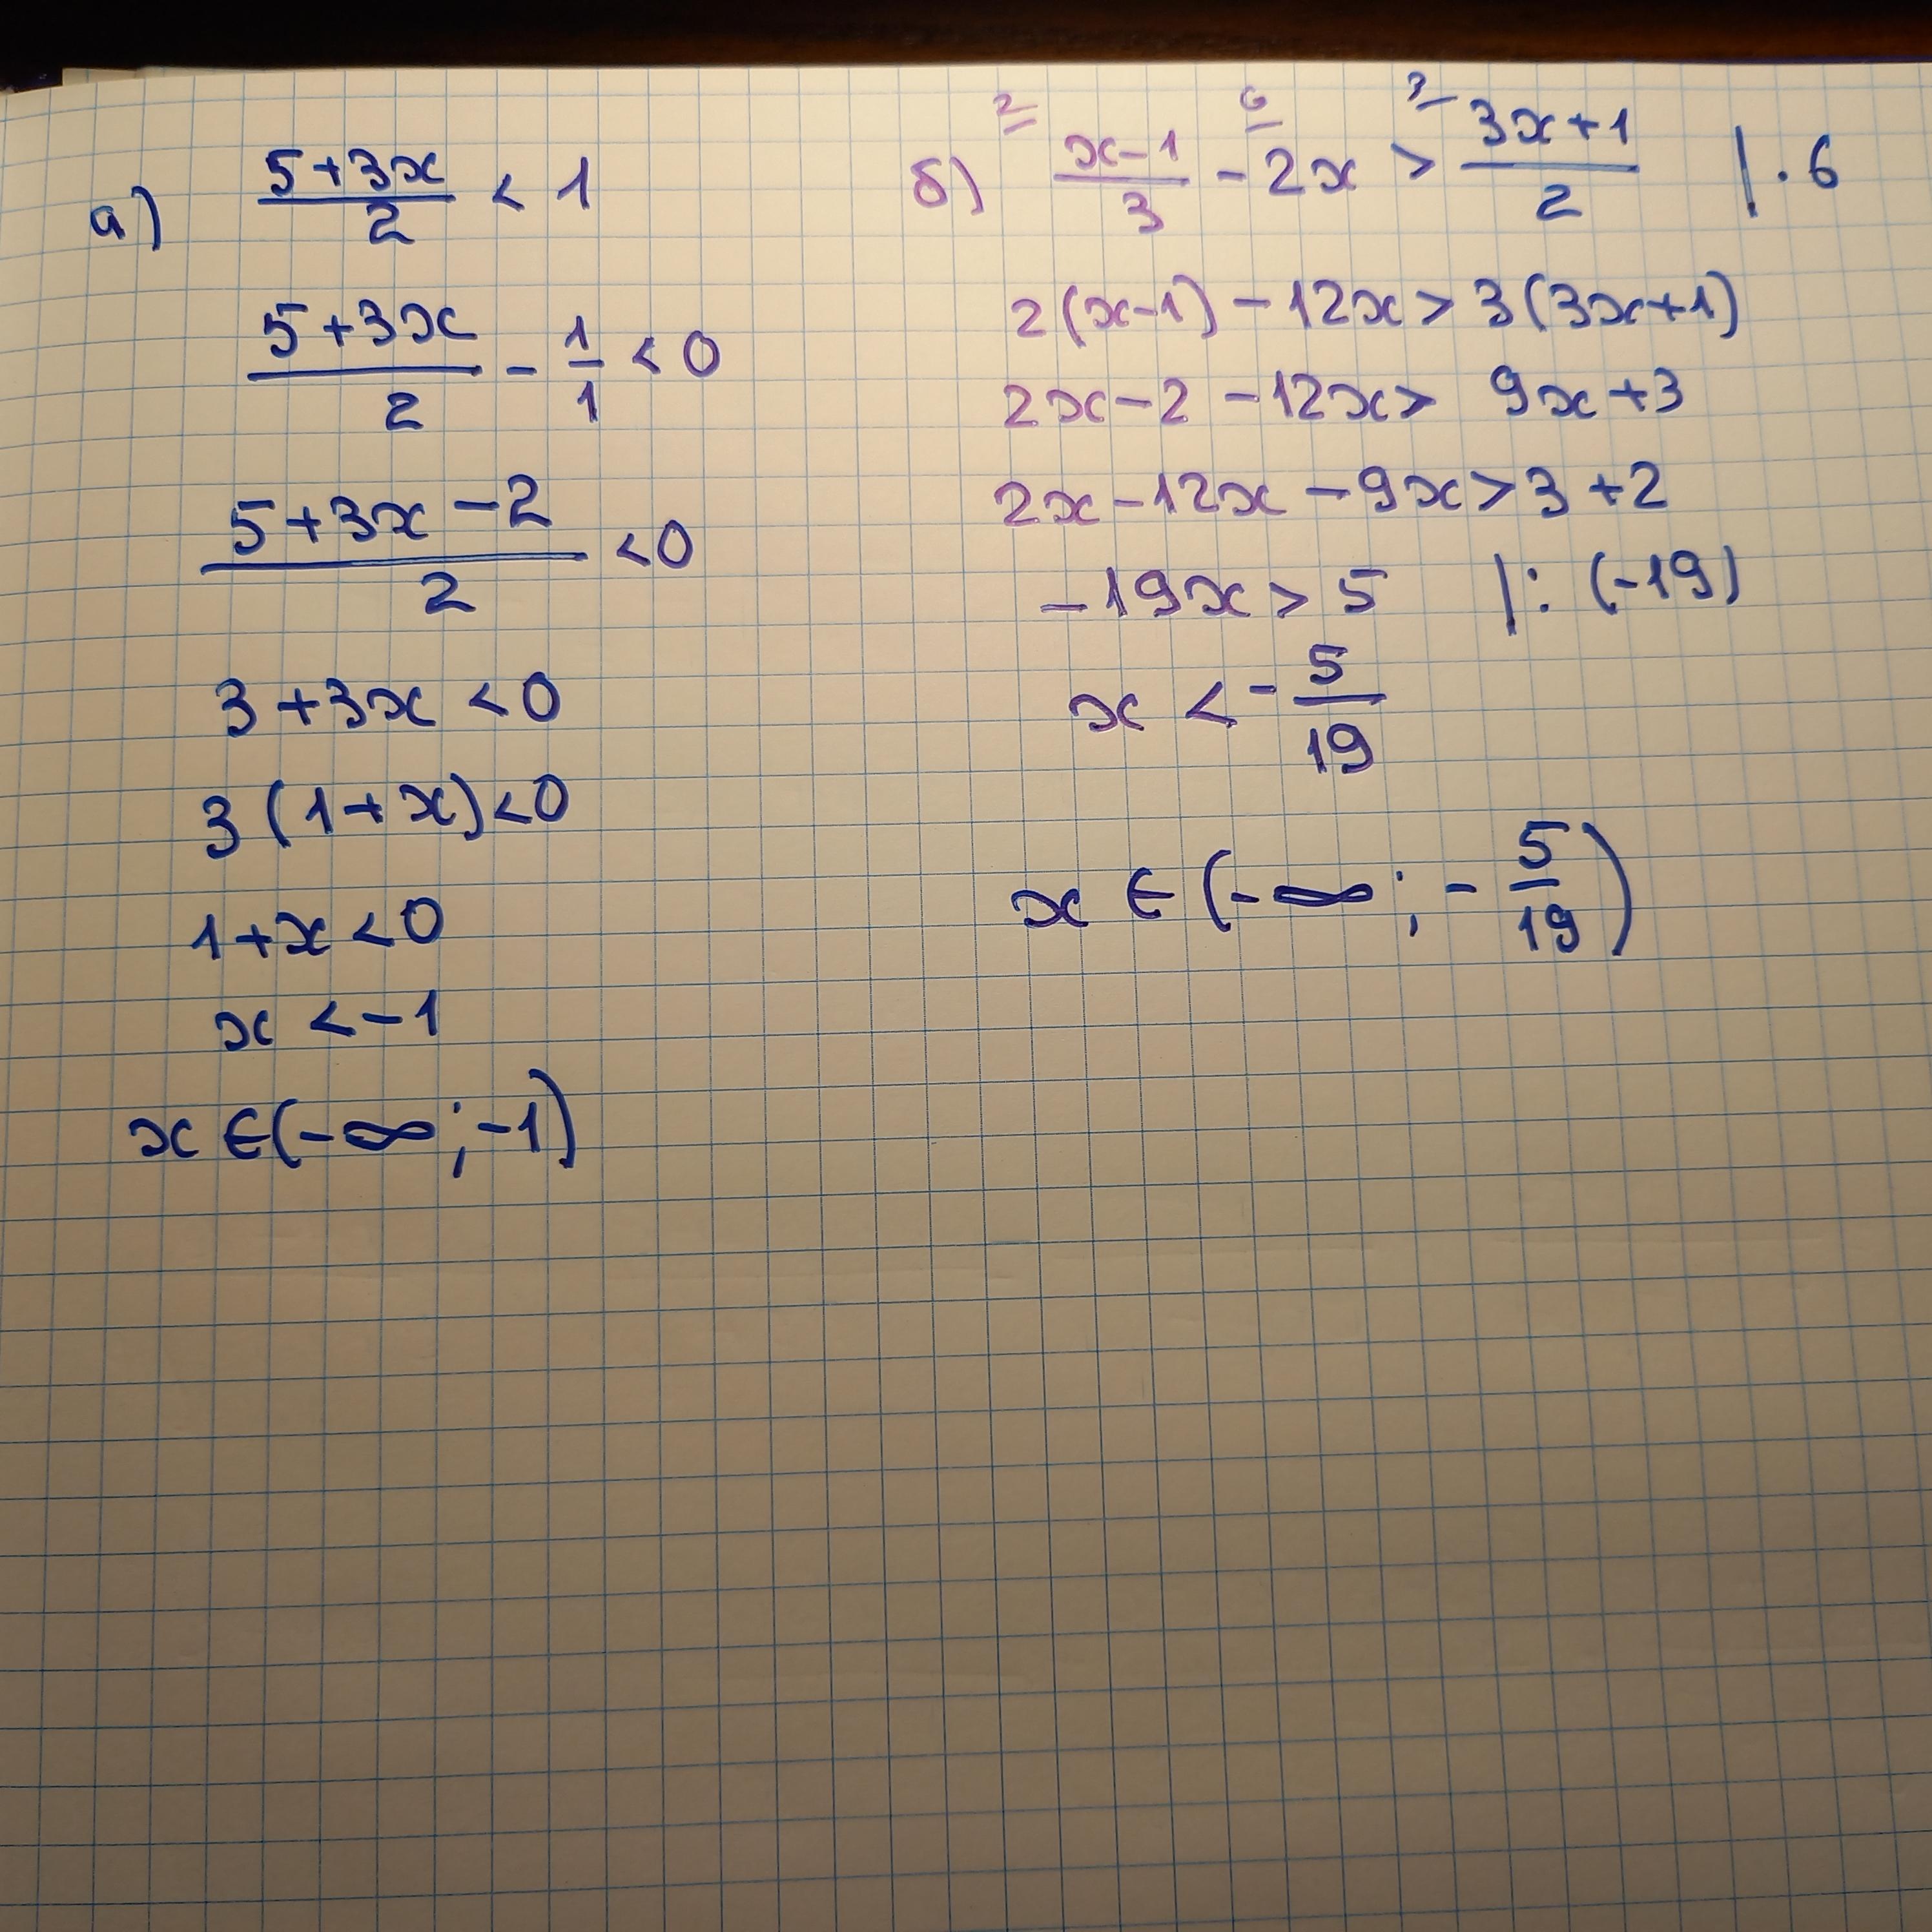 а) (5+3x)/2 < 1
(5+3x)/2 - 1/1 < 0
(5+3x-2)/2 < 0
3+3x < 0
3(1+x) < 0
1+x < 0
x < -1
x ∈ (-∞; -1)
2 6 3
б) (x-1)/3 - 2x > (3x+1)/2 | · 6
2(x-1) - 12x > 3(3x+1)
2x - 2 - 12x > 9x + 3
2x - 12x - 9x > 3 + 2
-19x > 5 | : (-19)
x < - 5/19
x ∈ (-∞; - 5/19)